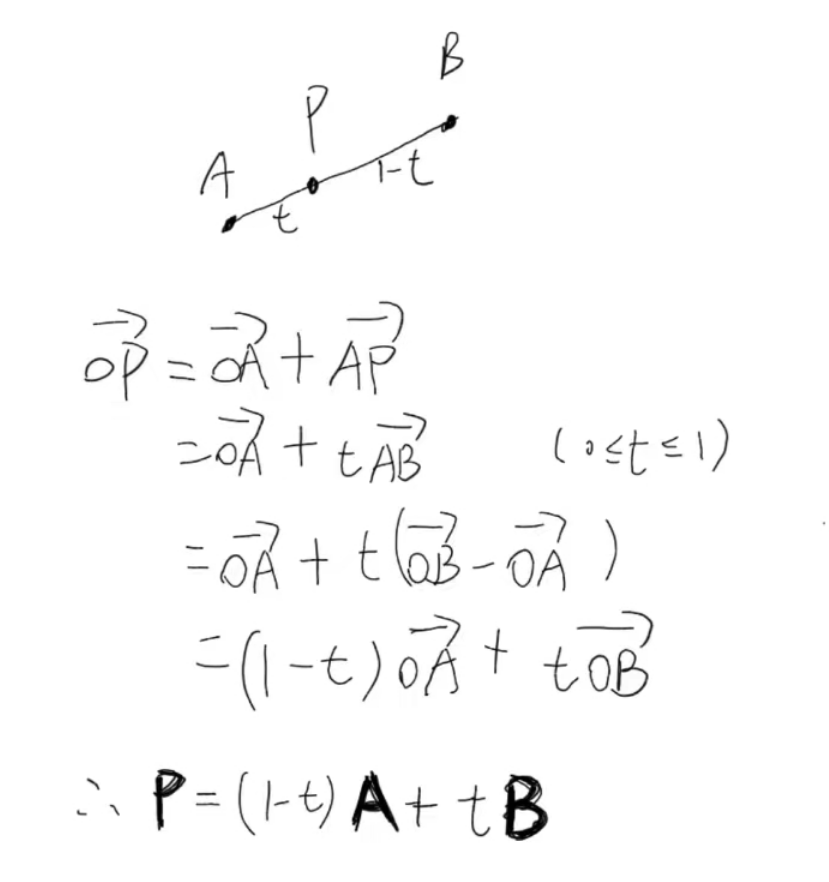 B
P
A
1-t
t
$\overrightarrow{OP} = \overrightarrow{OA} + \overrightarrow{AP}$
$= \overrightarrow{OA} + t\overrightarrow{AB}$ $(0 \leq t \leq 1)$
$= \overrightarrow{OA} + t(\overrightarrow{OB} - \overrightarrow{OA})$
$= (1-t)\overrightarrow{OA} + t\overrightarrow{OB}$
$\therefore \mathbf{P} = (1-t)\mathbf{A} + t\mathbf{B}$